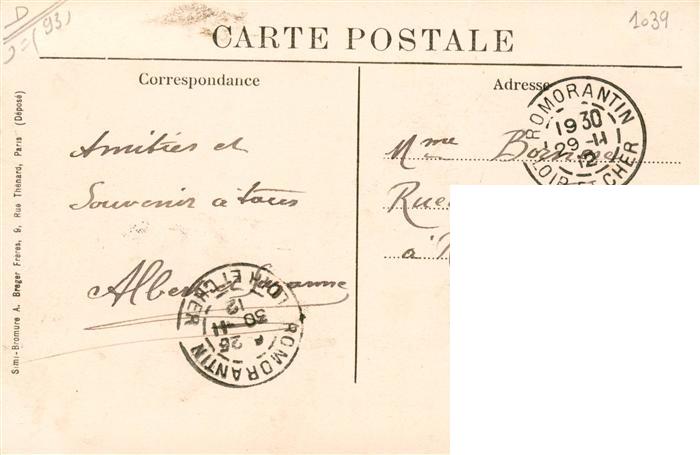 D
(93)
1039
CARTE POSTALE
Correspondance
Adresse
Amitiés et
Souvenir à tous
Albert
Mme
Rue
à
ROMORANTIN
19 30
29 -11
12
LOIR-ET-CHER
ROMORANTIN
25
30 -11
12
LOIR-ET-CHER
Simi-Bromure A. Breger Frères, 9, Rue Thénard, Paris (Déposé)